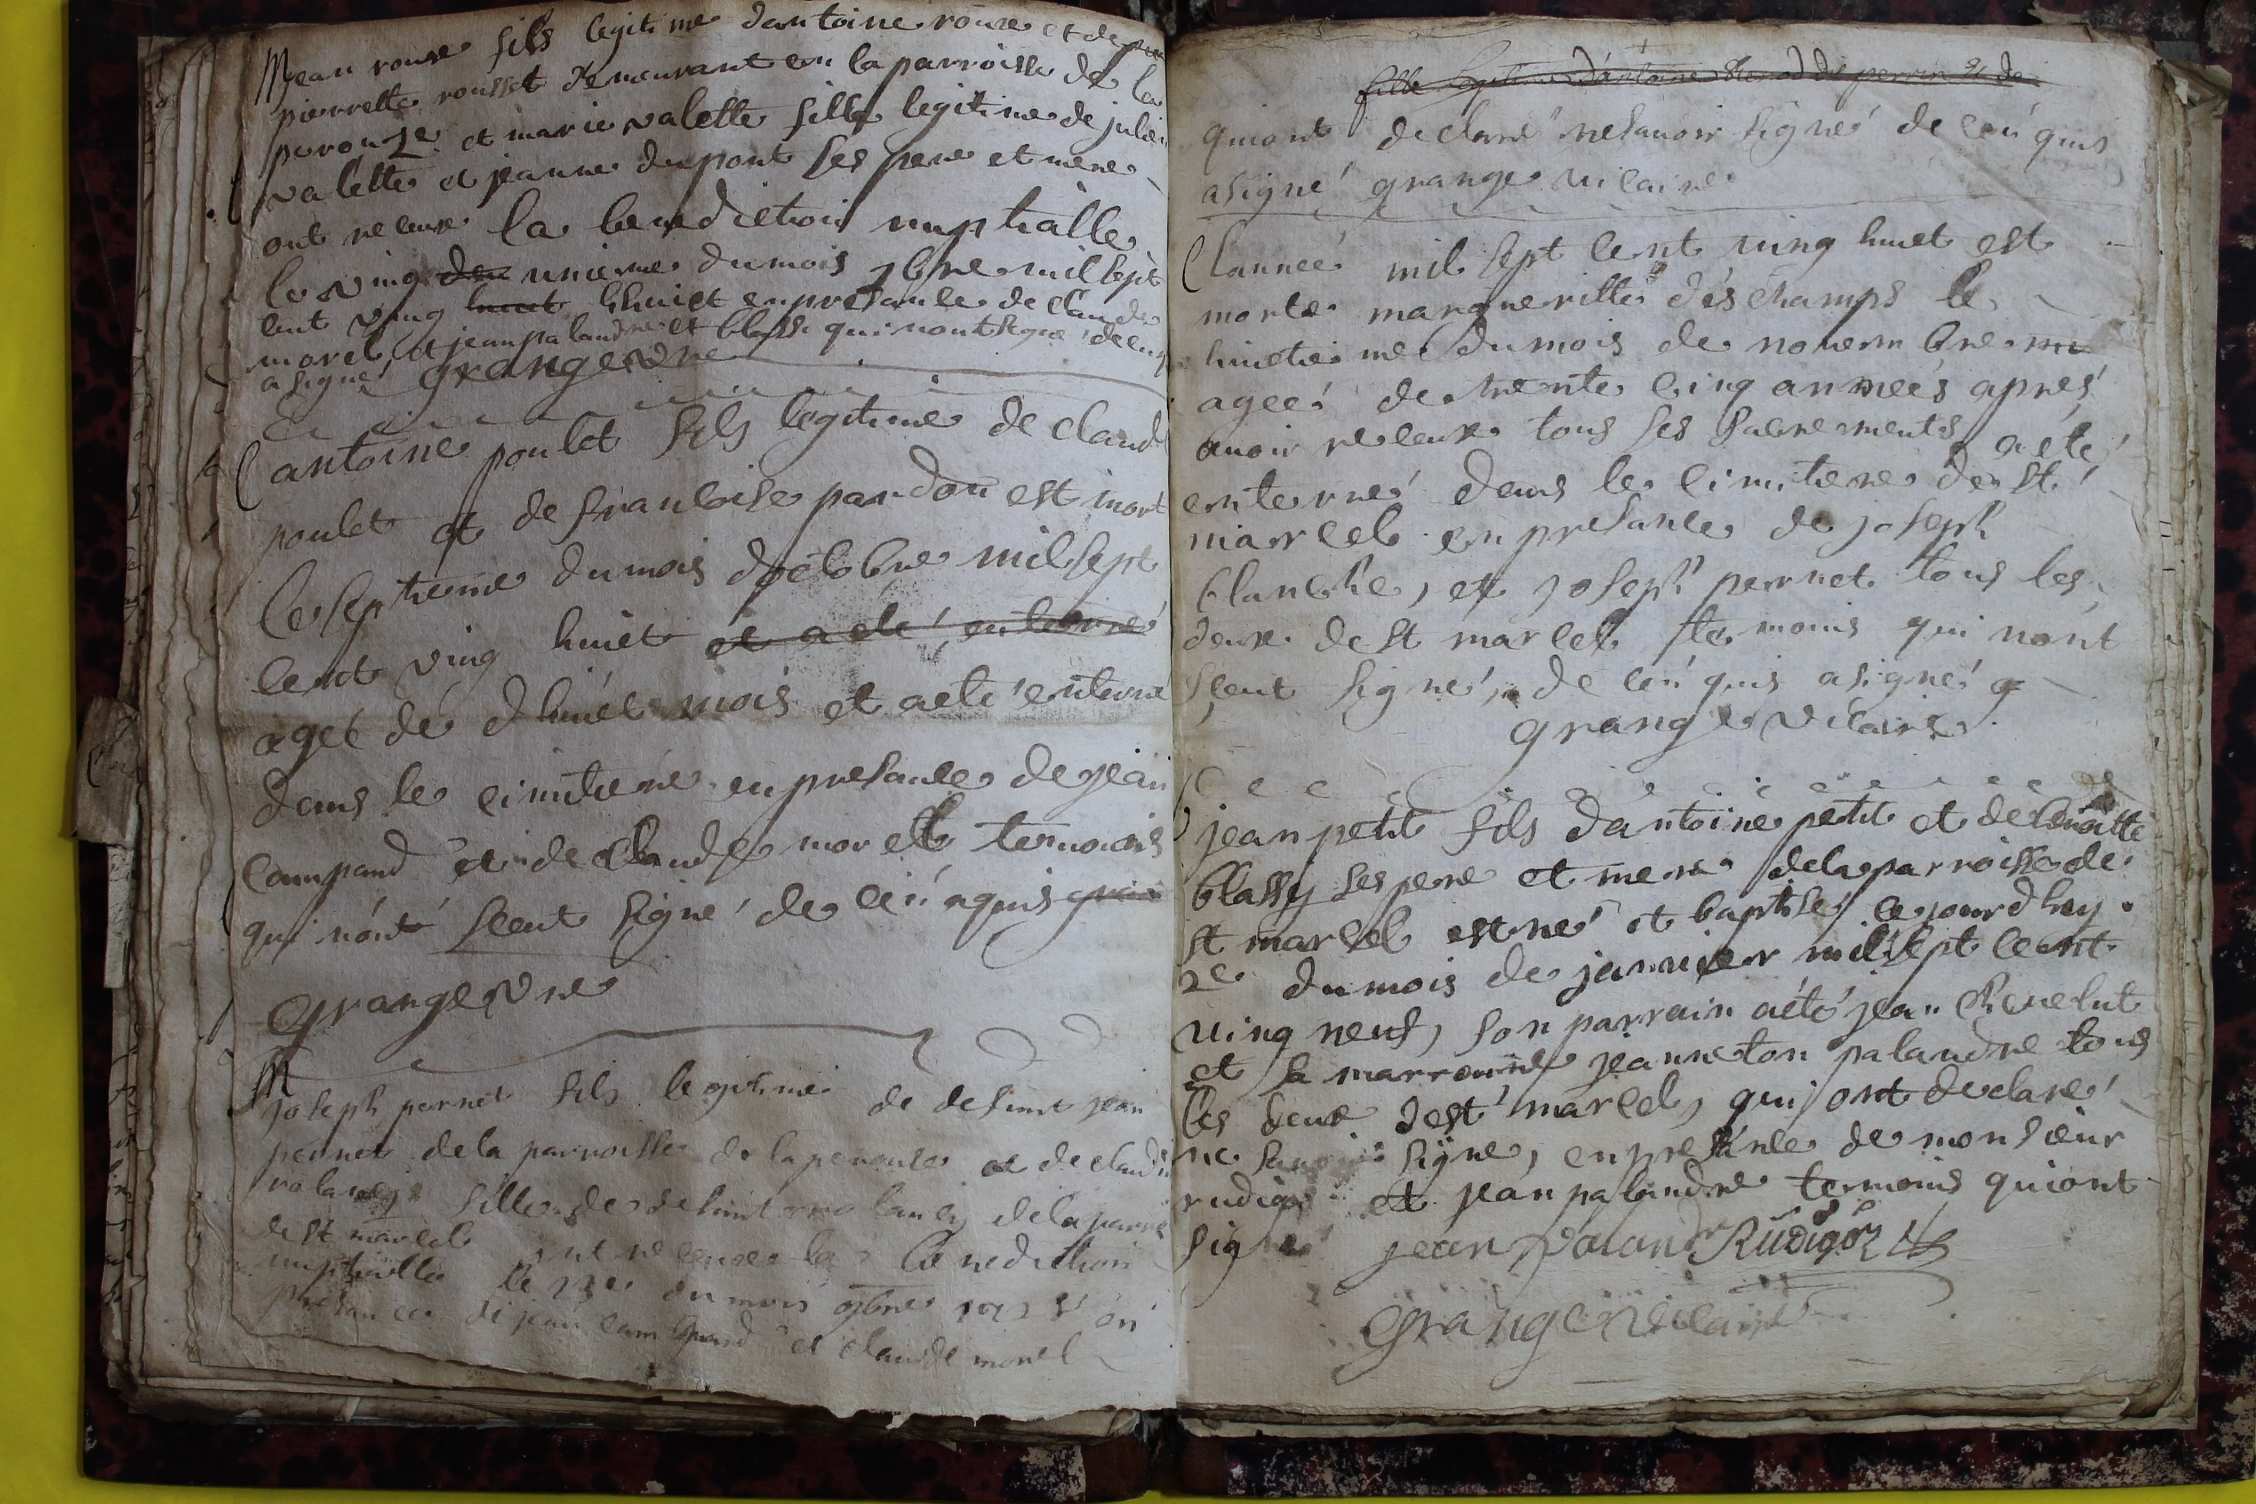 M jean roux fils legitime dantoine roux et de
pierrette rousset demeurant en la parroisse de la
perouze et marie valette fille legitime de julien
valette et jeanne dupont ses pere et mere
ont receux la benediction nuptialle
le ving deu unieme du mois 7bre mil sept
cent ving huict huict en presance de claude
morel et jean palandre et blassi qui nont signe de
a signé grange vre
antoine poulet fils legitime de claude
poulet et de francoise pardon est mort
le septieme du mois doctobre mil sept
cent ving huict et a eté enterré
ageé dé dhuict mois et a eté enterré
dans le cimitiere en presance de jean
campand et de claude morel temoins
qui nont sceut signé de ce enquis
grange vre
M
joseph pernet fils legitime de defunt jean
pernet de la parroisse de la perouse et de claudi
rolancy fille de defunt rolancy de la parre
de st marcel ont receux la benediction
nuptialle le du mois 9bre 1728 en
presance de jean campand et claude morel
fille legitime dantoine dit perrin et de
qui ont declaré ne savoir signé de ce quis
a signé grange vicaire
lanneé mil sept cent ving huict est
morte margueritte deschamps le
huictieme du mois de novembre
ageé de trente cinq anneés apres
avoir receux tous ses sacrements a eté
enterré dans le cimitiere de st
marcel en presance de joseph
blanche, et joseph pernet tous les
deux de st marcel temoins qui nont
sceut signé, de ce quis a signé g
grange vicaire
jean petit fils dantoine petit et de benoitte
blassy ses pere et mere de la parroisse de
st marcel est né et baptisé ce jourdhuy
2e du mois de janvier mil sept cent
ving neuf, son parrain a eté jean chevelut
et sa marrainne jeanneton palandre tous
les deux de st marcel, qui ont declaré
ne savoir signe, en presance de monsieur
rudigoz et jean palandre temoins qui ont
signé jean Palandre Rudigoz
grange vicaire